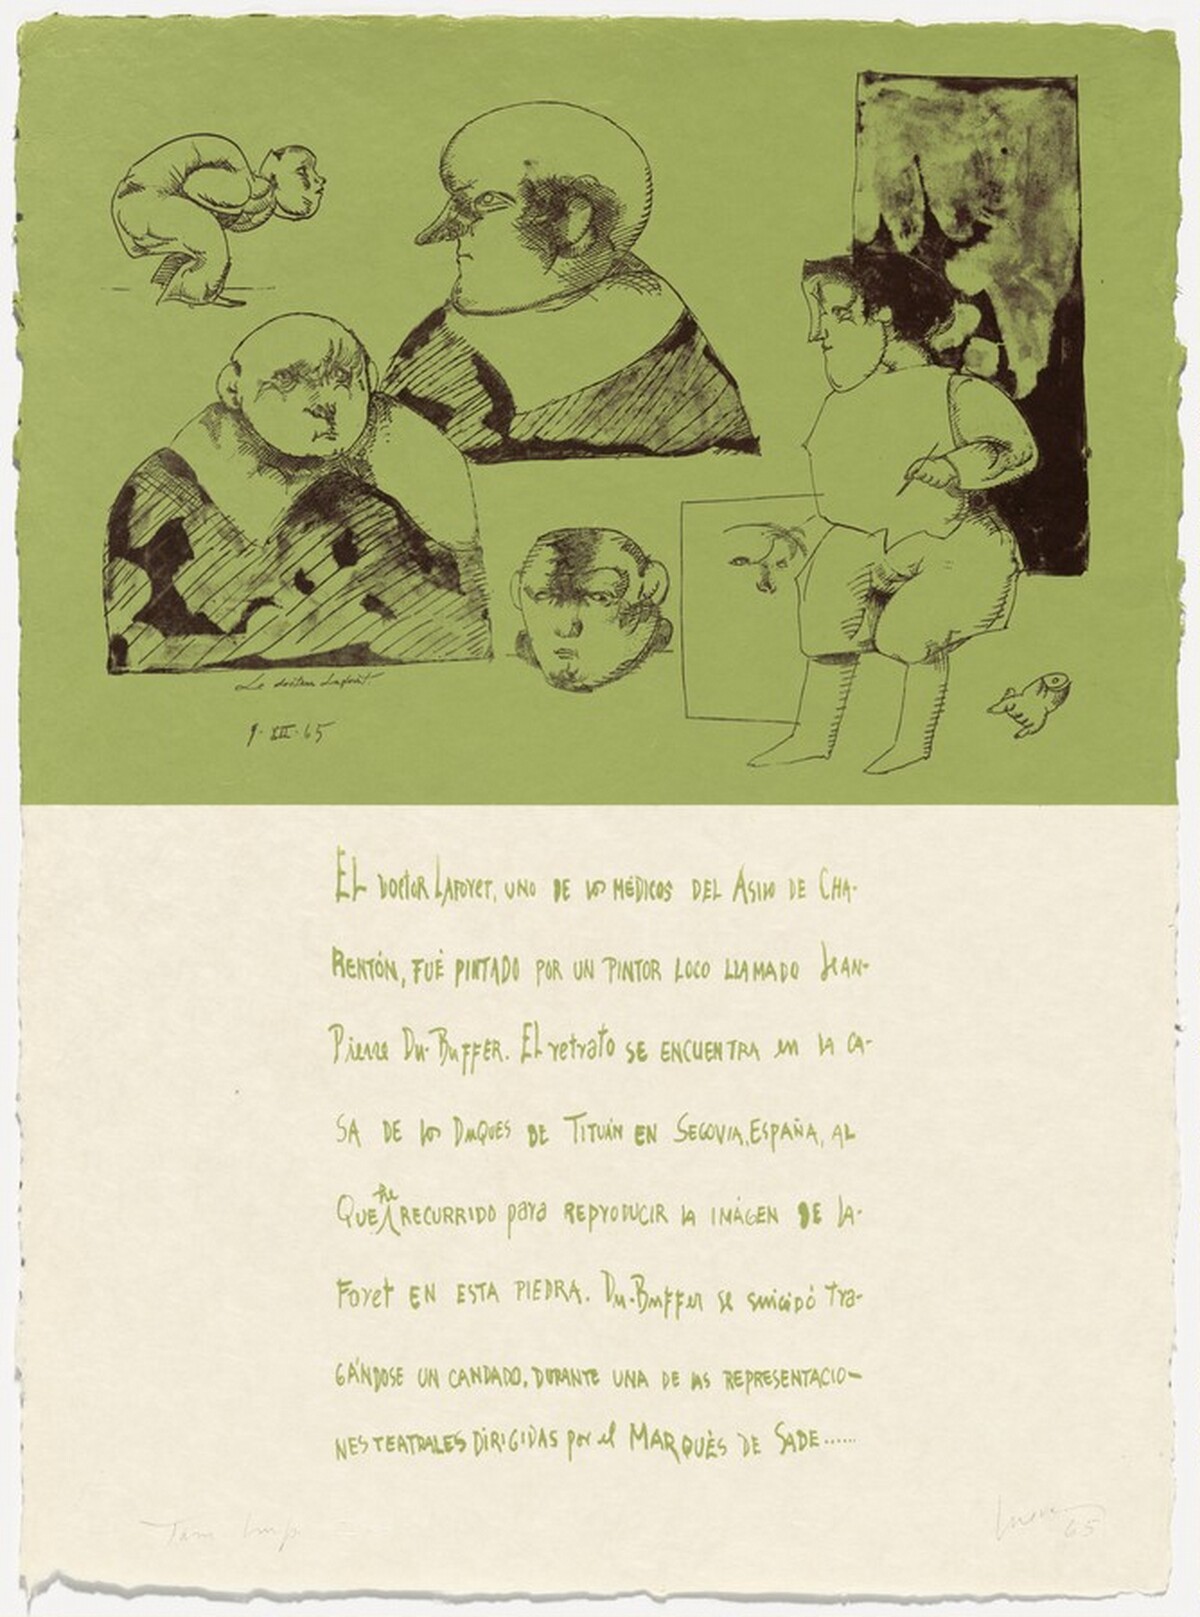 Le docteur Laforêt.
9·XII·65
EL DOCTOR LAFORET, UNO DE LOS MÉDICOS DEL ASILO DE CHA-
RENTÓN, FUÉ PINTADO POR UN PINTOR LOCO LLAMADO JEAN-
PIERRE DU-BUFFER. EL retrato SE ENCUENTRA en LA CA-
SA DE LOS DUQUES DE TITUÁN EN SEGOVIA, ESPAÑA, AL
QUE he RECURRIDO para REPRODUCIR LA IMÁGEN DE LA-
Foret EN ESTA PIEDRA. DU-BUFFER se suicidó TRA-
GÁNDOSE UN CANDADO, DURANTE UNA DE LAS REPRESENTACIO-
NES TEATRALES DIRIGIDAS por el MARQUÉS DE SADE......
Tam Imp
65